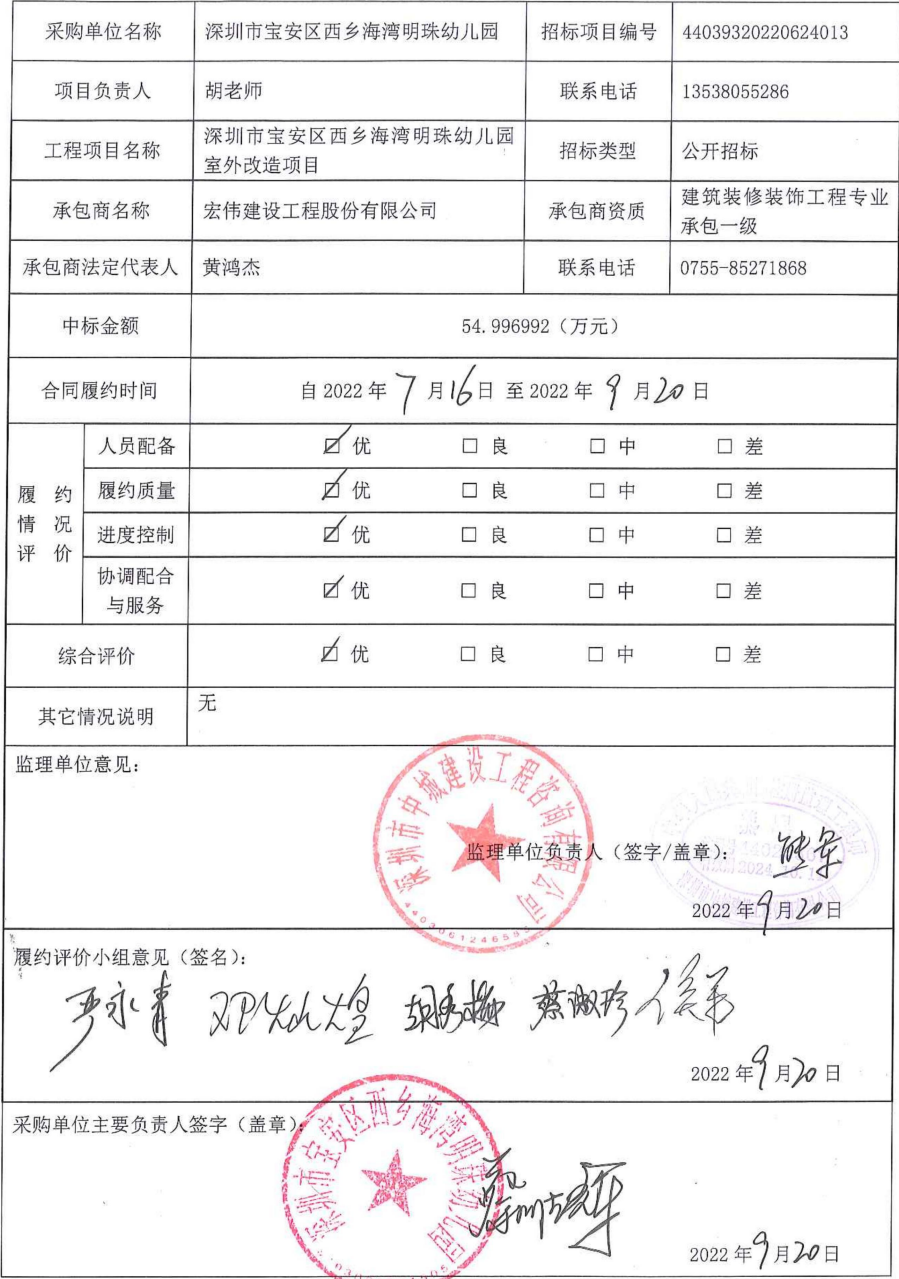 采购单位名称 深圳市宝安区西乡海湾明珠幼儿园 招标项目编号 44039320220624013
项目负责人 胡老师 联系电话 13538055286
工程项目名称 深圳市宝安区西乡海湾明珠幼儿园 招标类型 公开招标
室外改造项目
承包商名称 宏伟建设工程股份有限公司 承包商资质 建筑装修装饰工程专业
承包一级
承包商法定代表人 黄鸿杰 联系电话 0755-85271868
中标金额 54.996992（万元）
合同履约时间 自 2022 年 7 月 16 日 至 2022 年 9 月 20 日
履约情况评价
人员配备 ☑ 优 □ 良 □ 中 □ 差
履约质量 ☑ 优 □ 良 □ 中 □ 差
进度控制 ☑ 优 □ 良 □ 中 □ 差
协调配合
与服务 ☑ 优 □ 良 □ 中 □ 差
综合评价 ☑ 优 □ 良 □ 中 □ 差
其它情况说明 无
监理单位意见：
深圳市中城建设工程咨询有限公司
监理单位负责人（签字/盖章）：
2022 年 9 月 20 日
履约评价小组意见（签名）：
严永青 胡秀梅 蔡淑珍
2022 年 9 月 20 日
采购单位主要负责人签字（盖章）
深圳市宝安区西乡海湾明珠幼儿园
2022 年 9 月 20 日